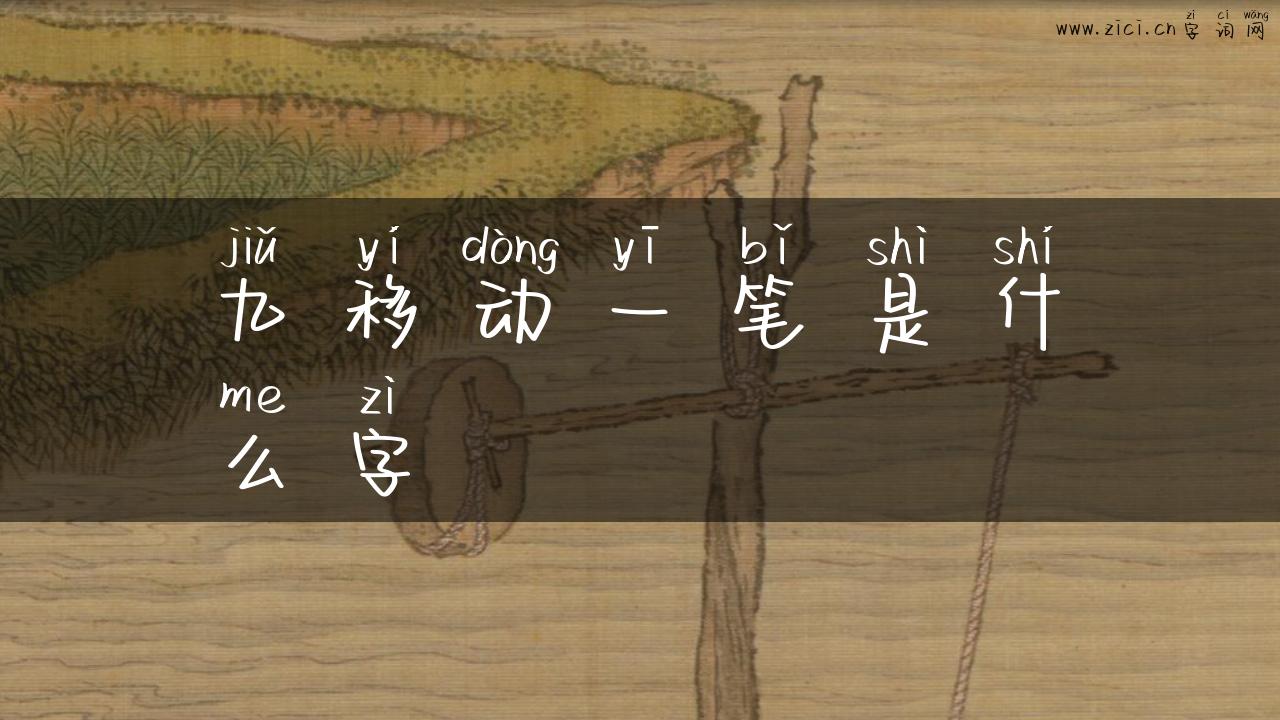 zì cí wǎng
www.zici.cn 字 词 网
jiǔ yí dòng yī bǐ shì shí
九 移 动 一 笔 是 什
me zì
么 字